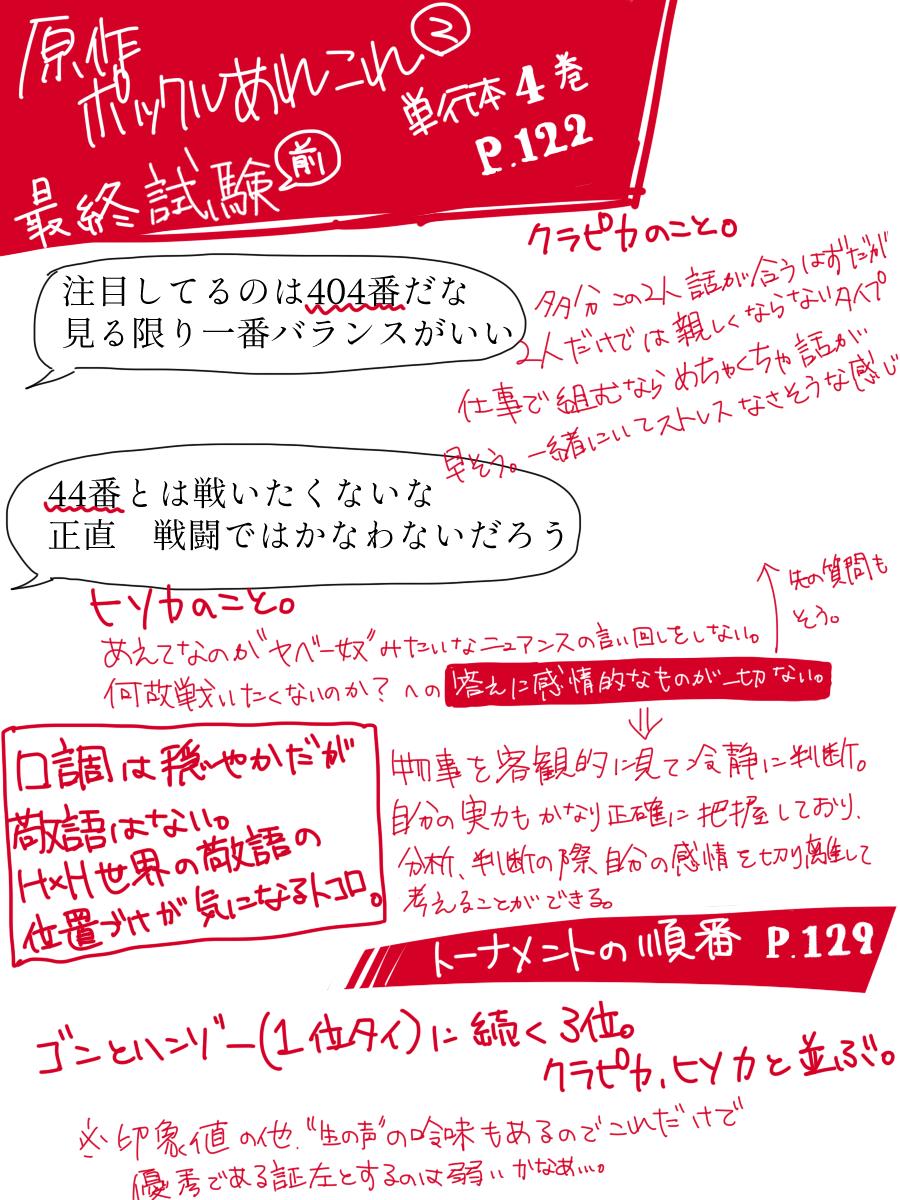 原作
ポックルあれこれ②
単行本4巻
P.122
最終試験 前
注目してるのは404番だな
見る限り一番バランスがいい
クラピカのこと。
多分この2人話が合うはずだが
2人だけでは親しくならないタイプ
仕事で組むならめちゃくちゃ話が
早そう。一緒にいてストレスなさそうな感じ
44番とは戦いたくないな
正直 戦闘ではかなわないだろう
ヒソカのこと。
先の質問も
そう。
あえてなのか"ヤベー奴"みたいなニュアンスの言い回しをしない。
何故戦いたくないのか？への答えに感情的なものが一切ない。
物事を客観的に見て冷静に判断。
自分の実力もかなり正確に把握しており、
分析、判断の際自分の感情を切り離して
考えることができる。
口調は穏やかだが
敬語はない。
H×H世界の敬語の
位置づけが気になるトコロ。
トーナメントの順番 P.129
ゴンとハンゾー(1位タイ)に続く3位。
クラピカ、ヒソカと並ぶ。
※印象値の他、"生の声"の吟味もあるのでこれだけで
優秀である証左とするのは弱いかなぁ…。